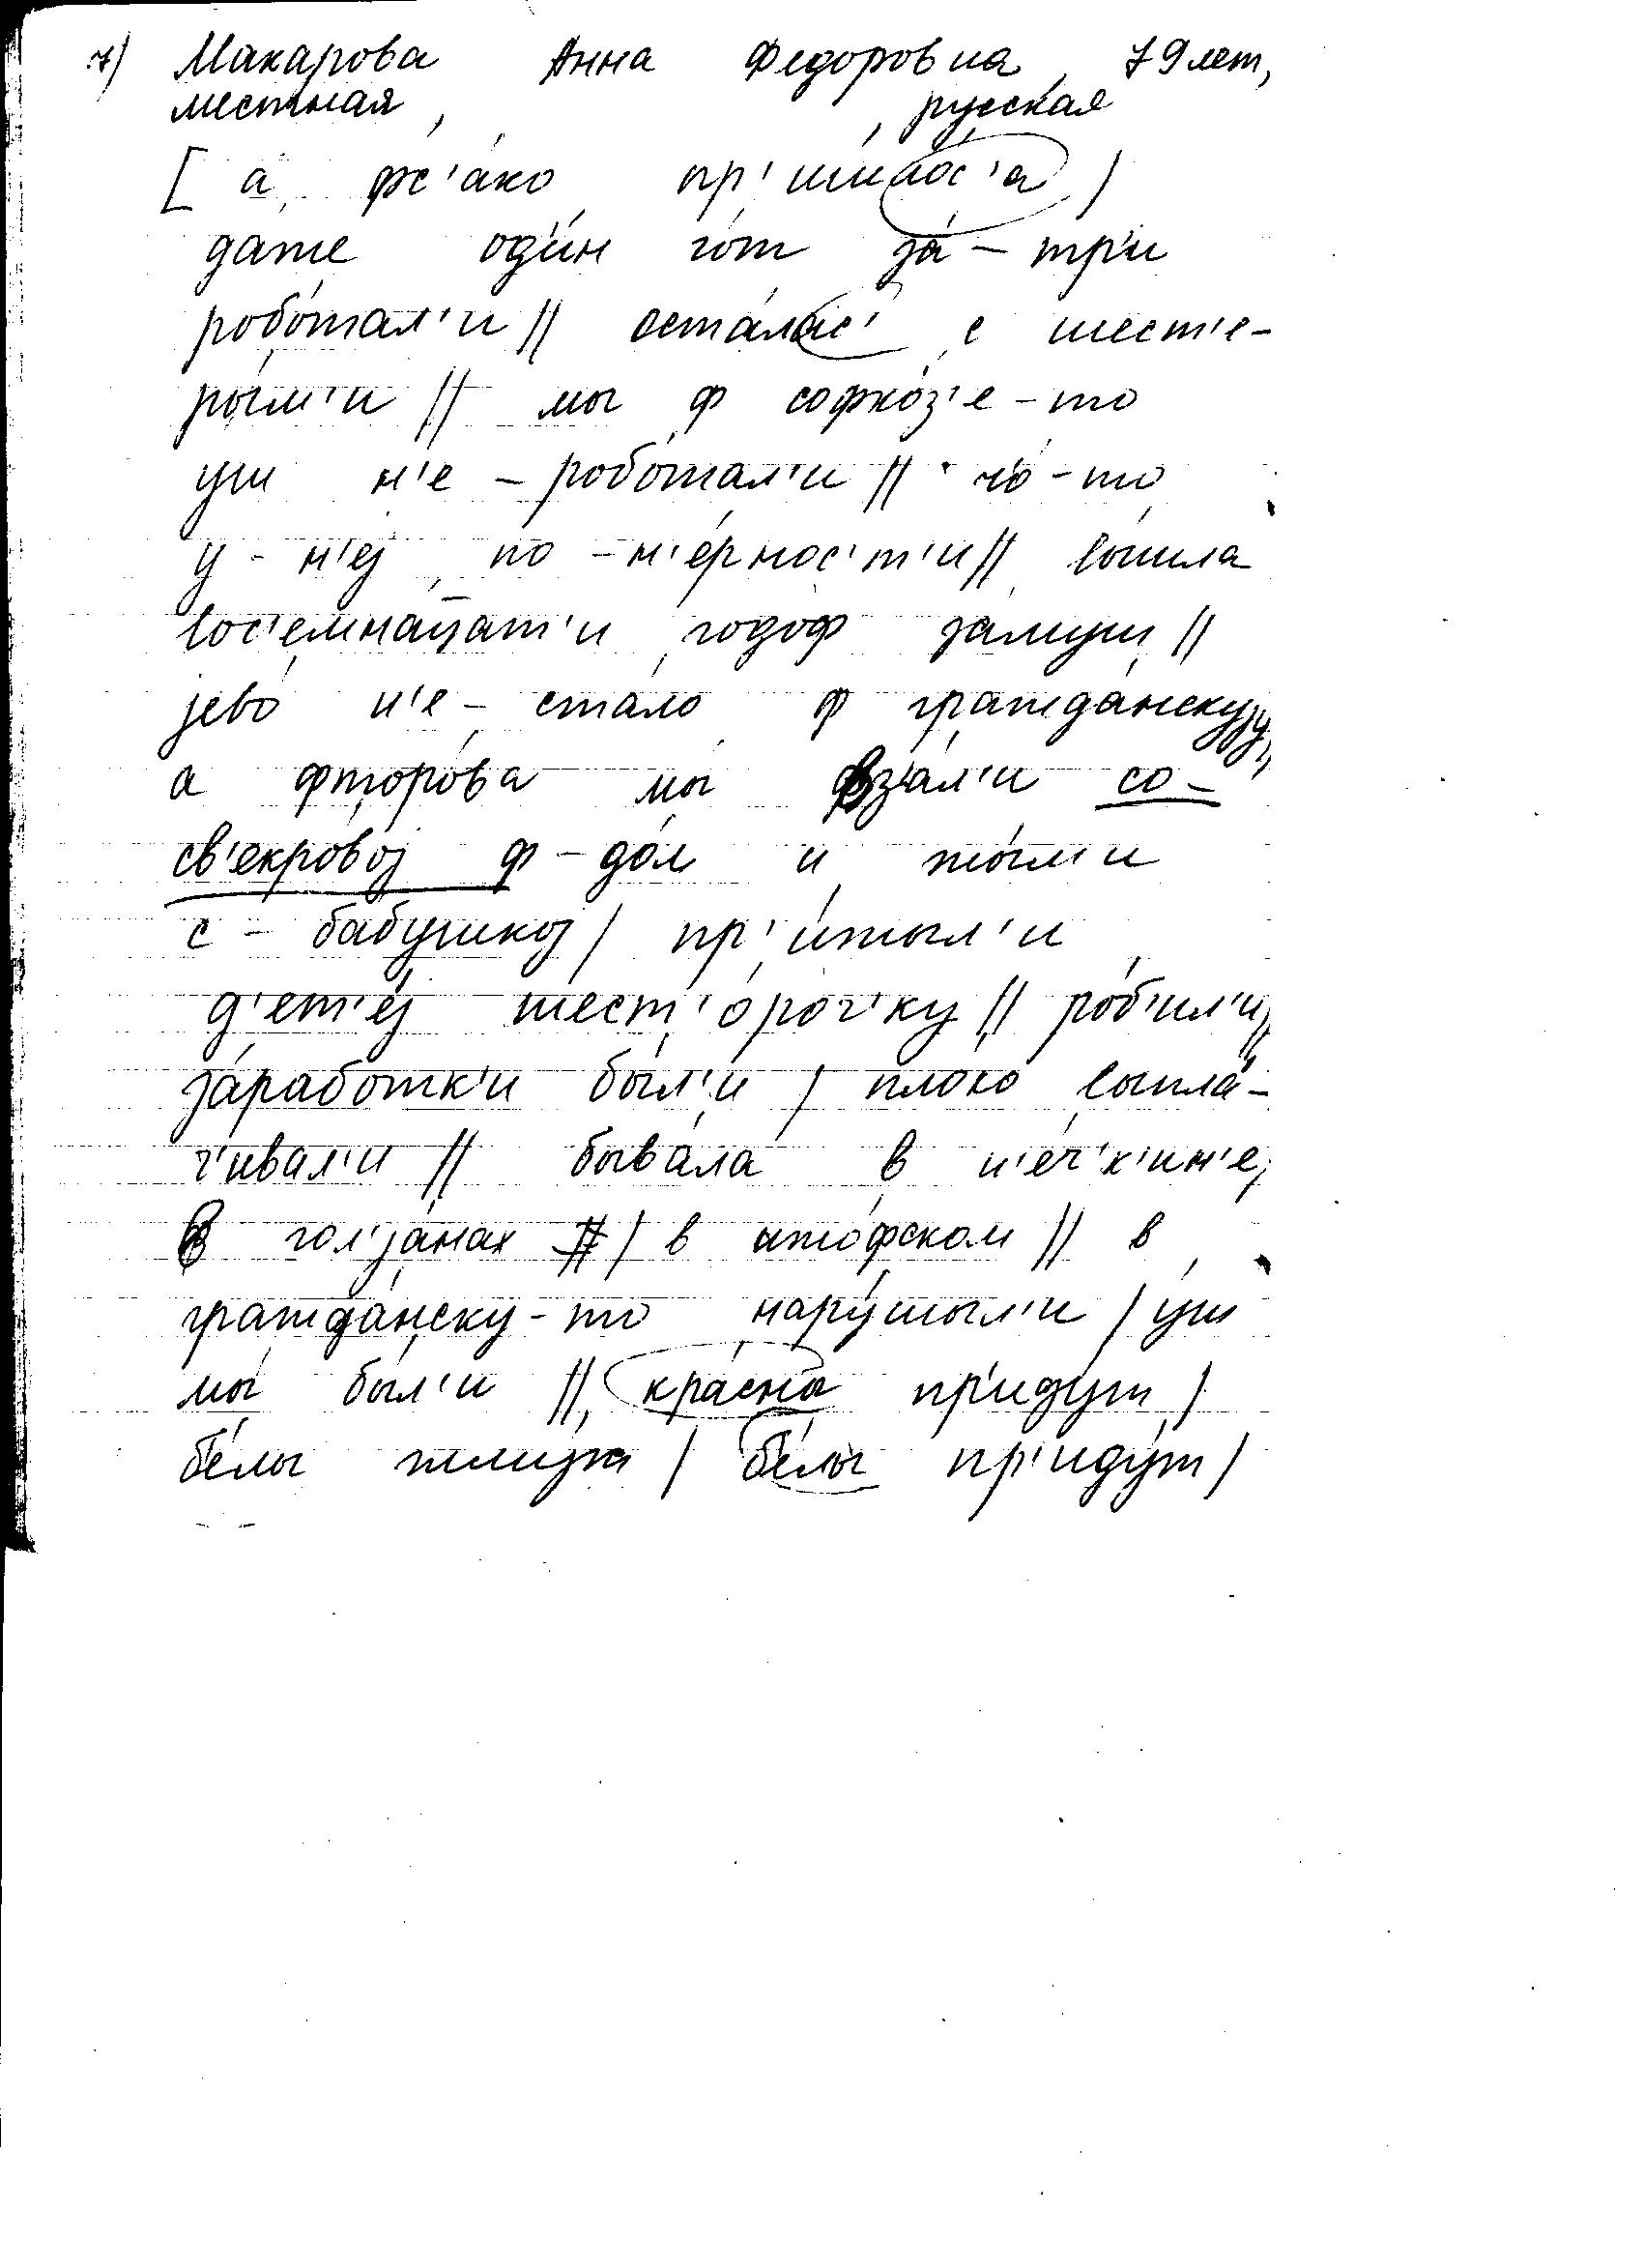 7) Макарова Анна Федоровна, 79 лет,
местная, , русская
[ а фс'а́ко пр'ишло́с'а /
да́же од'и́н го́т за́ – тр'и
робо́тал'и // оста́лас' с шест'е-
ры́м'и // мы ф софхо́з'е – то
уш н'е – робо́тал'и // ч'о́ – то
у – н'еј по – н'е́рнос'т'и // вы́шла
вос'емна́цат'и годоф замуш //
јево́ н'е – ста́ло ф гражда́нскују,
а фторо́ва мы́ взал'и со –
св'екро́вој ф – до́м и жы́л'и
с – ба́бушкој / пр'и́жыл'и
д'ет'е́ј шест'о́роч'ку // ро́б'ил'и,
за́работк'и бы́л'и / пло́хо выпла́-
ч'ивал'и // быва́ла в н'е́ч'к'ин'е,
в гол'ја́нах / в ижо́фском // в
гражда́нску – то нару́шыл'и / уш
мы́ бы́л'и // кра́сны пр'иду́т /
бе́лы жмут / бе́лы пр'иду́т /